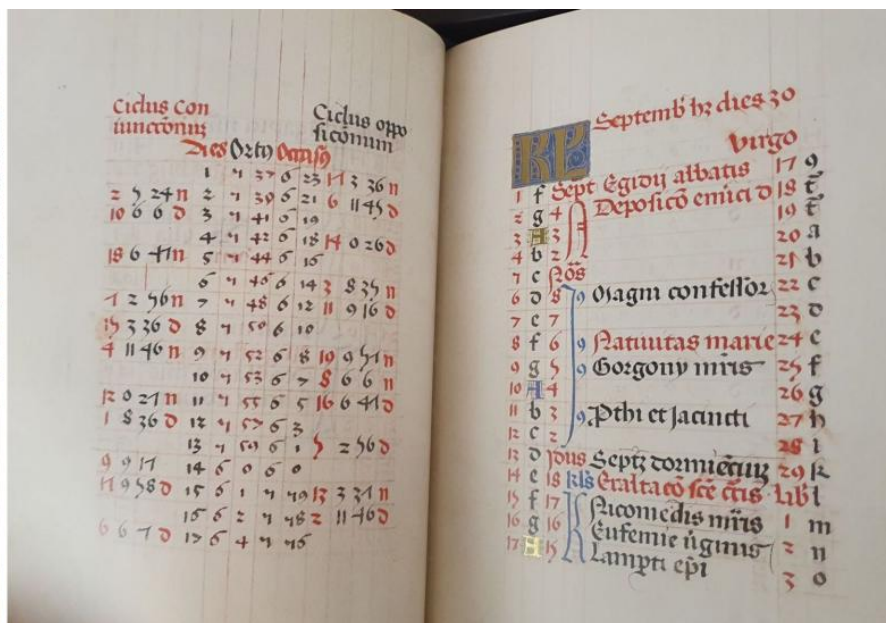 Ciclus Con
iuncconum
Dies Ortus Occasus
Ciclus oppo
siconum
1 5 37 6 23 17 3 36 n
2 5 24 n 2 5 39 6 21 6 11 45 d
10 6 6 d 3 5 41 6 19
4 5 42 6 18 14 0 26 d
18 6 41 n 5 5 44 6 16
6 5 46 6 14 3 8 35 n
7 2 56 n 7 5 48 6 12 11 9 16 d
15 3 36 d 8 5 50 6 10
4 11 46 n 9 5 52 6 8 19 9 51 n
10 5 53 6 7 8 6 6 n
12 0 21 n 11 5 55 6 5 16 6 41 d
1 8 36 d 12 5 57 6 3
13 5 59 6 1 5 2 56 d
9 9 11 14 6 0 6 0
17 9 58 d 15 6 1 5 59 13 3 31 n
16 6 2 5 58 2 11 46 d
6 6 7 d 17 6 4 5 56
KL Septemb hz dies 30
Virgo
17 9
1 f Sept Egidij abbatis 18 t
2 g 4 N Deposico emici d 19 t
3 A 3 20 a
4 b 2 21 b
5 c Nos 22 c
6 d 8 9 Magni confessor 23 d
7 e 7
8 f 6 9 Natiuitas marie 24 e
9 g 5 9 Gorgony mris 25 f
10 A 4 26 g
11 b 3 9 Pthi et Jacincti 27 h
12 c 2 28 i
13 d Idus Septz dormiecium 29 k
14 e 18 kls Exaltaco sce crcis Lib l
15 f 17 K Nicomedis mris 1 m
16 g 16 Eufemie uginis 2 n
17 A 15 Lampti epi 3 o